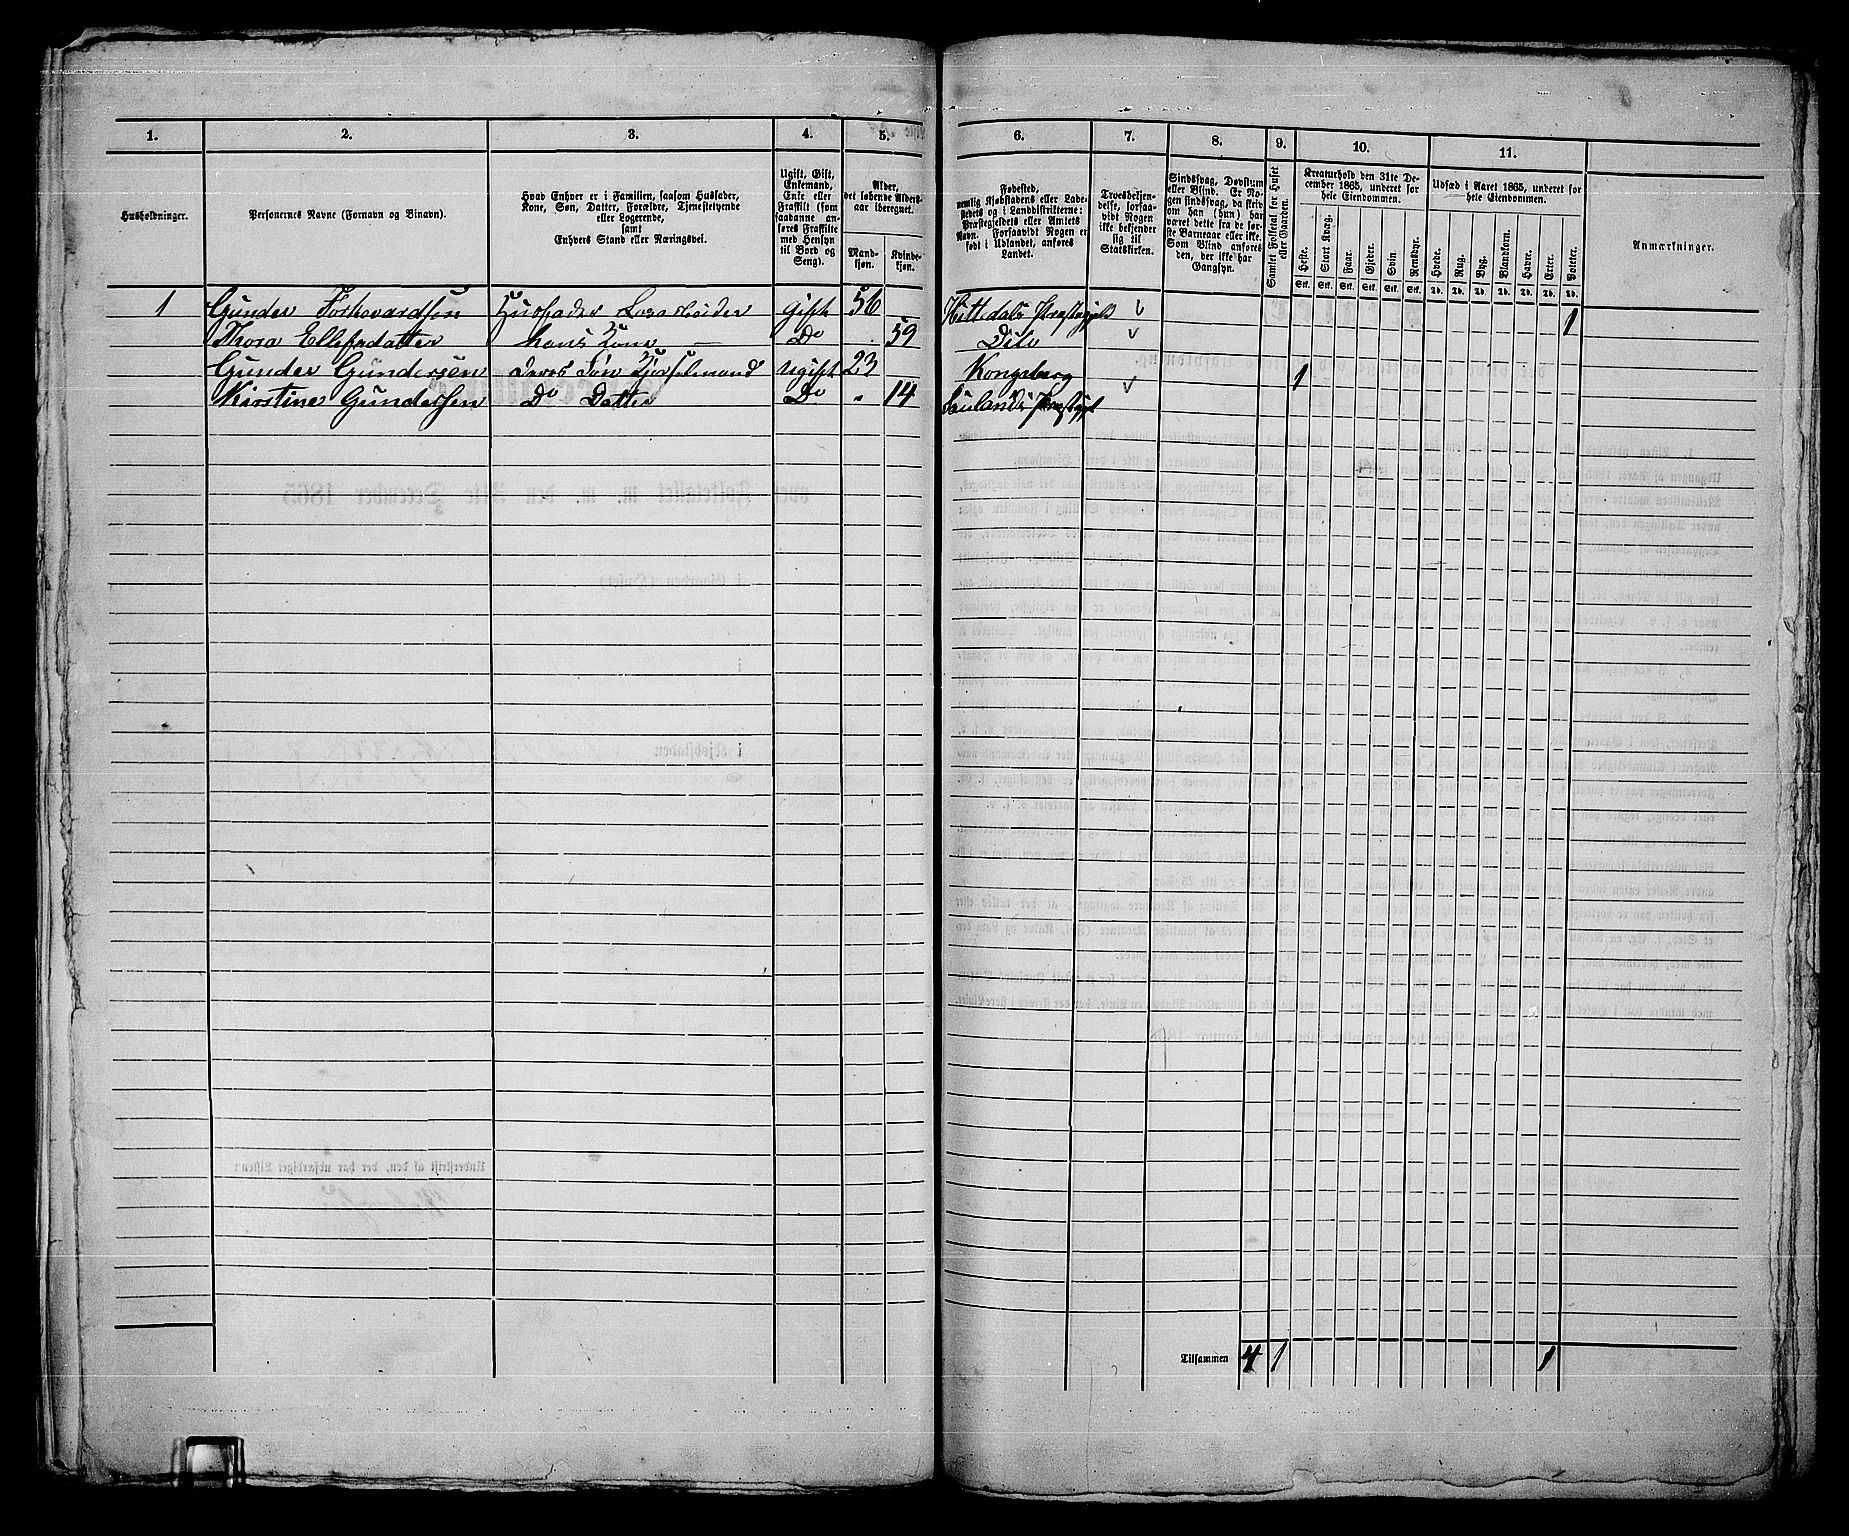 1. 2. 3. 4. 5. 6. 7. 8. 9. 10. 11.
Husholdninger.
Personernes Navne (Fornavn og Binavn).
Hvad Enhver er i Familien, saasom Husfader,
Kone, Søn, Datter, Forældre, Tjenestetyende
eller Logerende,
samt
Enhvers Stand eller Næringsvei.
Ugift, Gift,
Enkemand,
Enke eller
Fraskilt (som
saadanne an-
føres Fraskilte
med Hensyn
til Bord og
Seng).
Alder,
det løbende Alders-
aar iberegnet.
Mand-
kjøn.
Kvinde-
kjøn.
Fødested,
nemlig Kjøbstadens eller Lade-
stedets og i Landdistrikterne:
Præstegjeldets eller Amtets
Navn. Forsaavidt Nogen er
født i Udlandet, anføres
Landet.
Troesbekjen-
delse, forsaa-
vidt Nogen
ikke bekjender
sig til
Statskirken.
Sindssvag, Døvstum
eller Blind. Er No-
gen sindssvag, da skriv
om han (hun) har
været dette fra de før-
ste Barneaar eller ikke.
Som Blind anføres
den, der ikke har
Gangsyn.
Samlet Folketal for Huset
eller Gaarden.
Kreaturhold den 31te De-
cember 1865, underet for
hele Eiendommen.
Heste. Stort Kvæg. Faar. Gjeder. Svin. Rensdyr.
Stk. Stk. Stk. Stk. Stk. Stk.
Udsæd i Aaret 1865, underet for
hele Eiendommen.
Hvede. Rug. Byg. Blandkorn. Havre. Erter. Poteter.
Td. Td. Td. Td. Td. Td. Td.
Anmærkninger.
1 Gunder Torkevardsen Husfader Losarbeider Gift 56 Hittedals Præstegjeld 1
Thora Ellefsdatter hans Kone — Do 59 Dito
Gunder Gundersen deres Søn Kjørselsmand ugift 23 Kongsberg 1
Kirstine Gundersen Do Datter Do 14 Saulands Præstgjel
Tilsammen 4 1 1